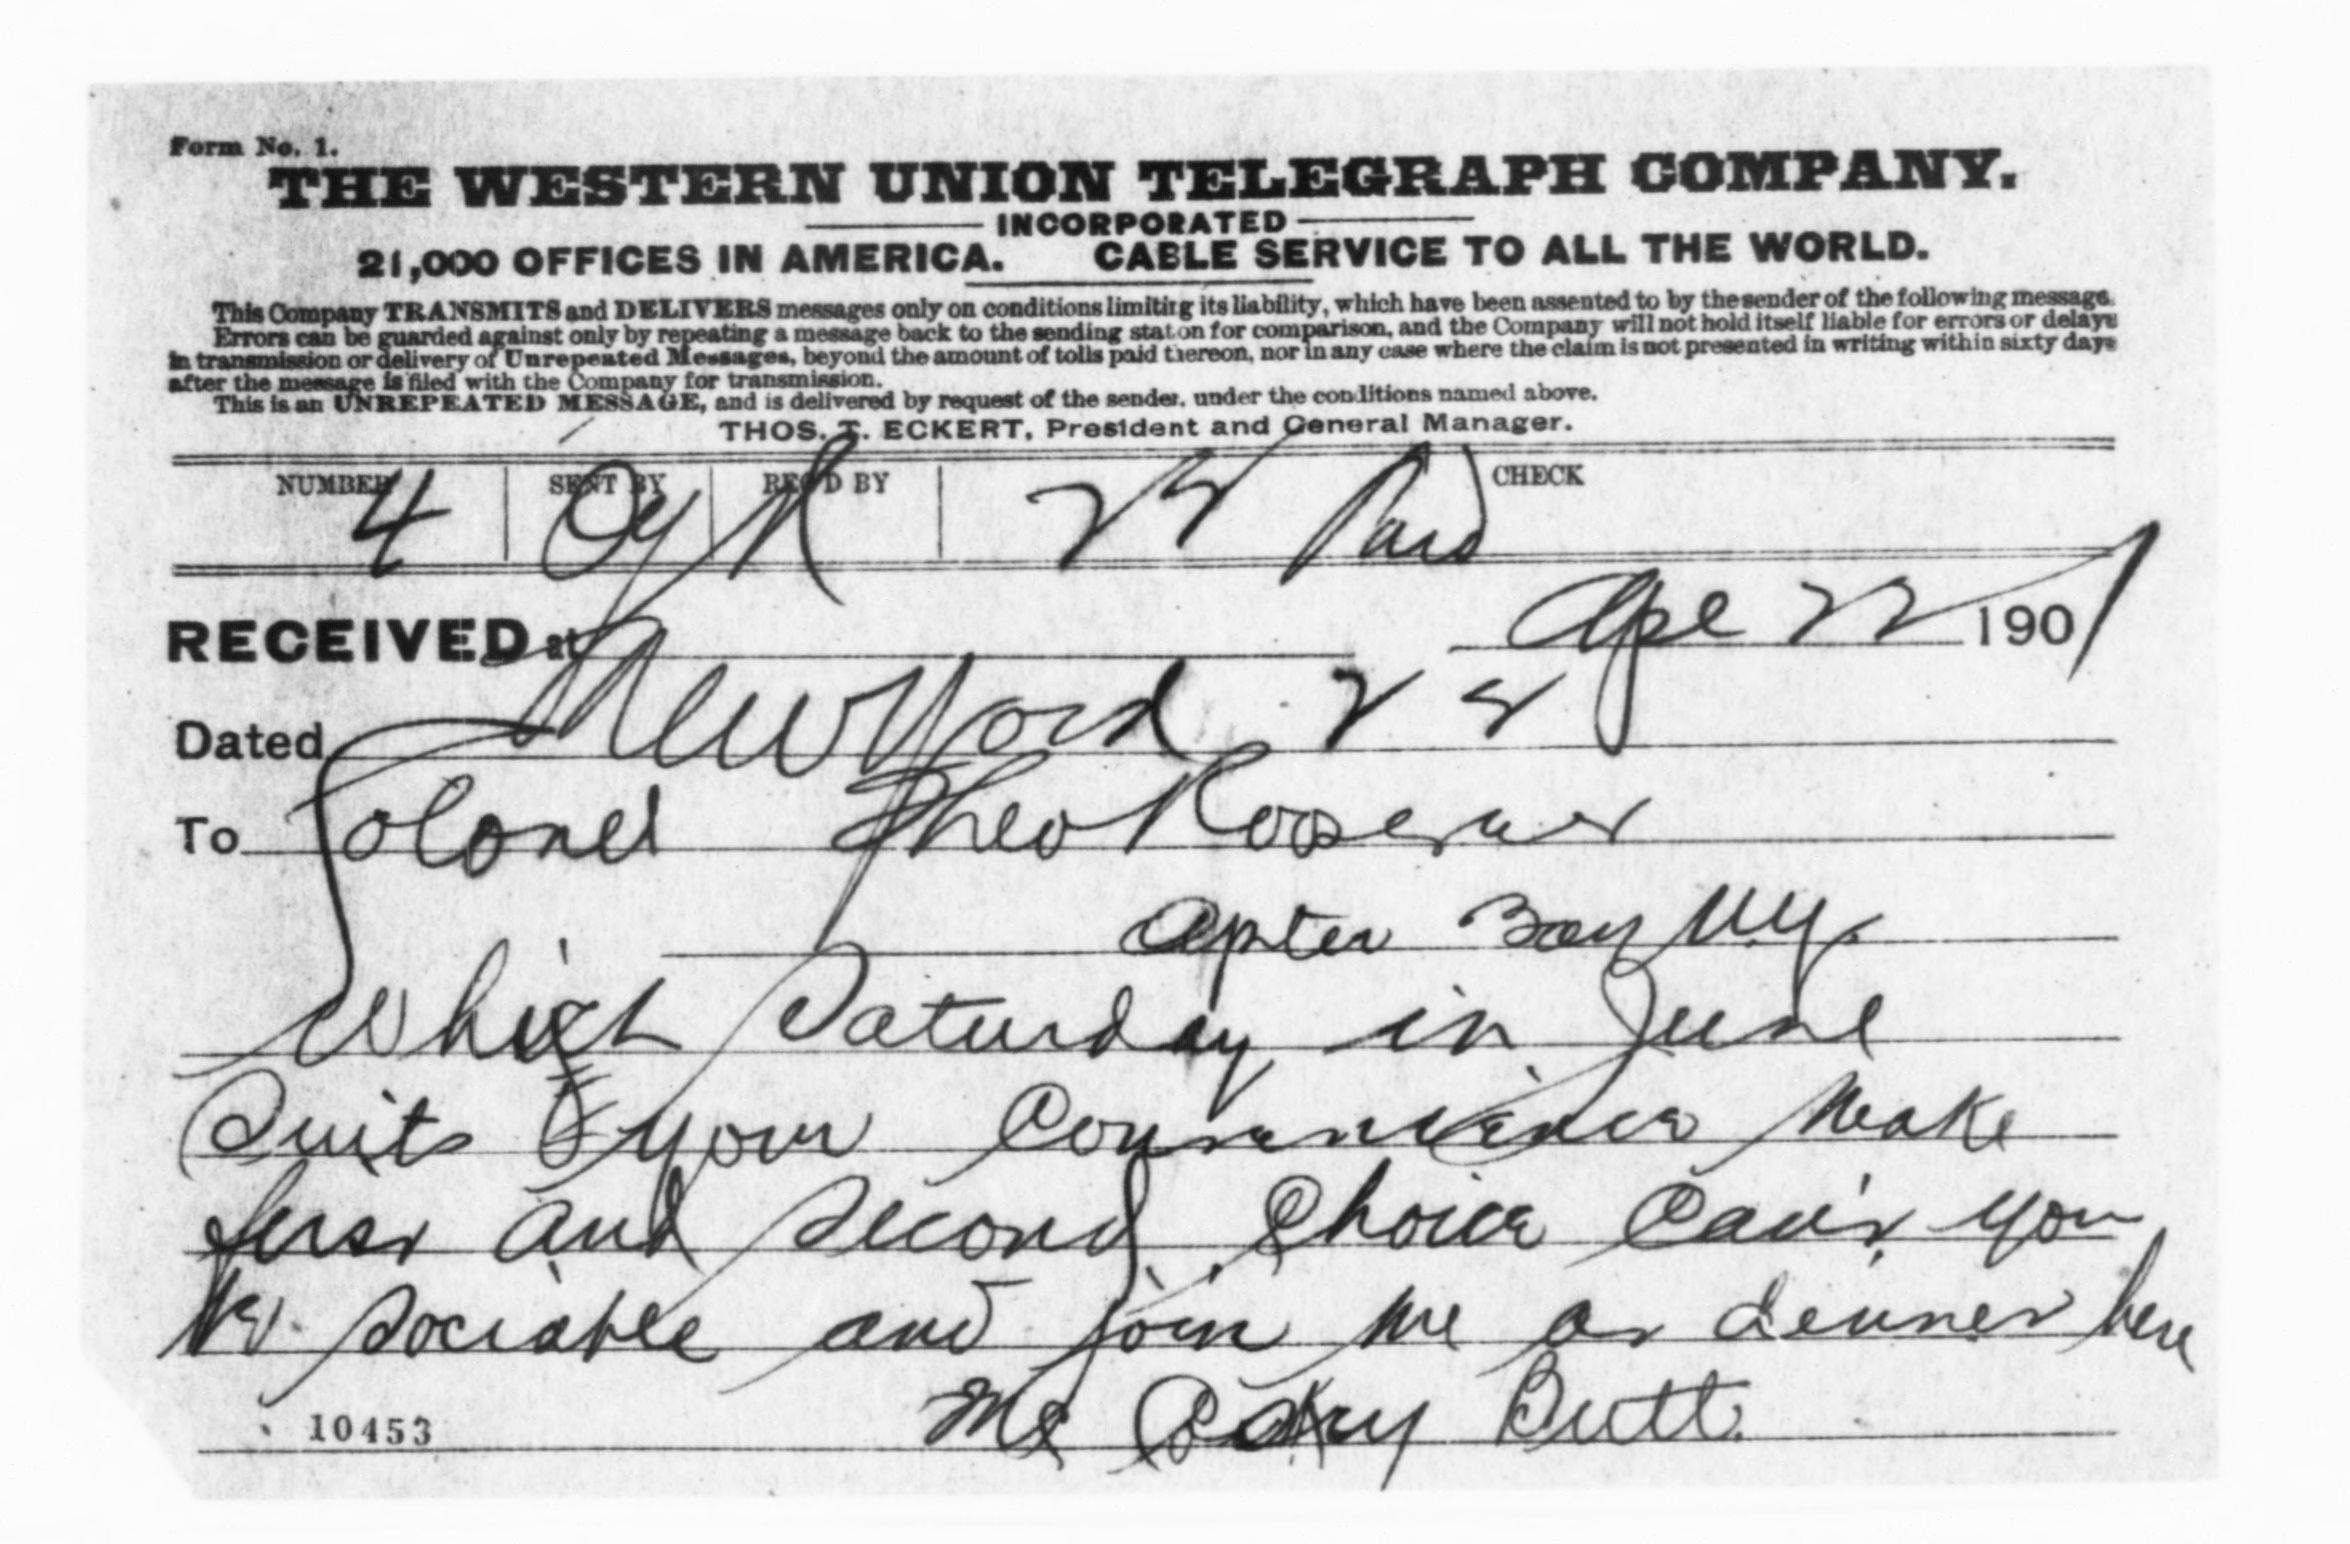 Form No. 1.
THE WESTERN UNION TELEGRAPH COMPANY.
INCORPORATED
21,000 OFFICES IN AMERICA. CABLE SERVICE TO ALL THE WORLD.
This Company TRANSMITS and DELIVERS messages only on conditions limiting its liability, which have been assented to by the sender of the following message.
Errors can be guarded against only by repeating a message back to the sending station for comparison, and the Company will not hold itself liable for errors or delays
in transmission or delivery of Unrepeated Messages, beyond the amount of tolls paid thereon, nor in any case where the claim is not presented in writing within sixty days
after the message is filed with the Company for transmission.
This is an UNREPEATED MESSAGE, and is delivered by request of the sender, under the conditions named above.
THOS. T. ECKERT, President and General Manager.
NUMBER SENT BY REC'D BY CHECK
4 Paid
RECEIVED at Apl 22 1901
Dated New York 22
To Colonel Theo Roosevelt
Oyster Bay NY.
Which Saturday in June
Suits your Convenience Make
first and Second Choice Can't you
be sociable and join me at dinner here
Mc Butt
10453